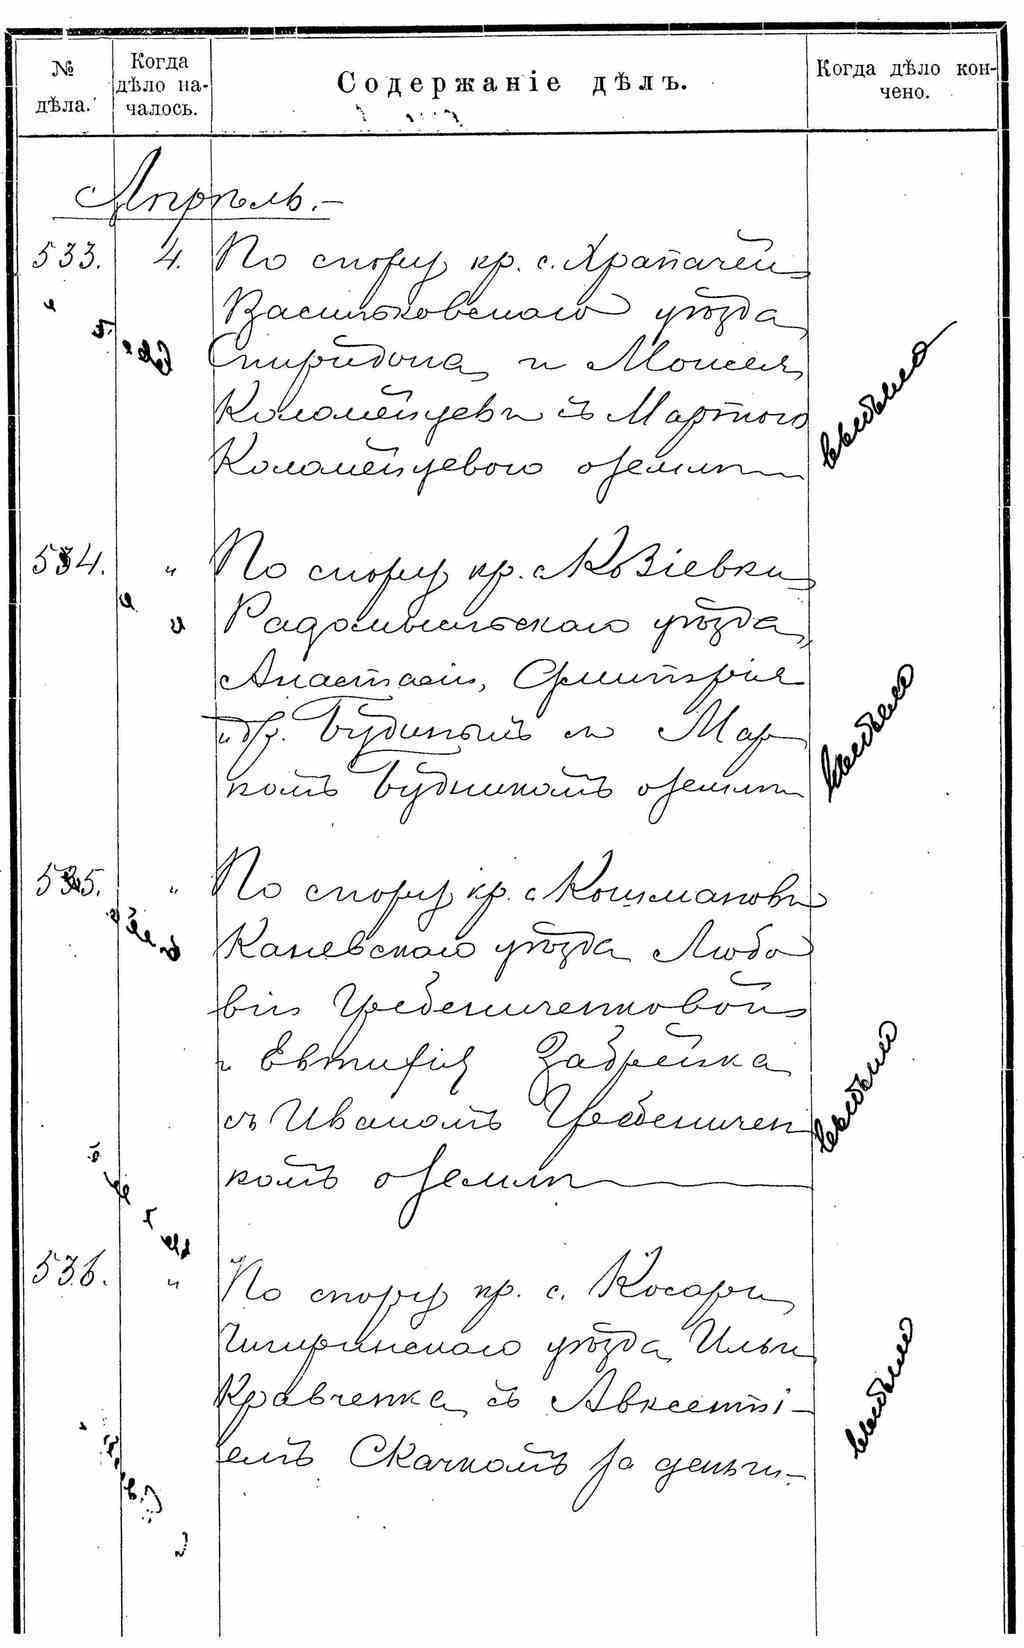 № дѣла.
Когда дѣло на-
чалось.
Содержаніе дѣлъ.
Когда дѣло кон-
чено.
Апрѣль.-
533. 4. По спору кр. с. Храпачей
Васильковскаго уѣзда
Спиридона и Моисея
Коломейцевы съ Мартого
Коломейцевого о землѣ
534. " По спору кр. с. Козіевки
Радомысльскаго уѣзда,
Анастасіи, Дмитрія
и др. Будиных съ Мар
комъ Будникомъ о землѣ
535. " По спору кр. с.
Каневскаго уѣзда Любо
віи Гребениченковой
и Евтифія Забрейка
съ Иваномъ Гребеничен
комъ о землѣ
536. " По спору кр. с. Косари
Чигиринскаго уѣзда Ильи
Кравченка съ Авксенті-
емъ Скачкомъ за деньги-